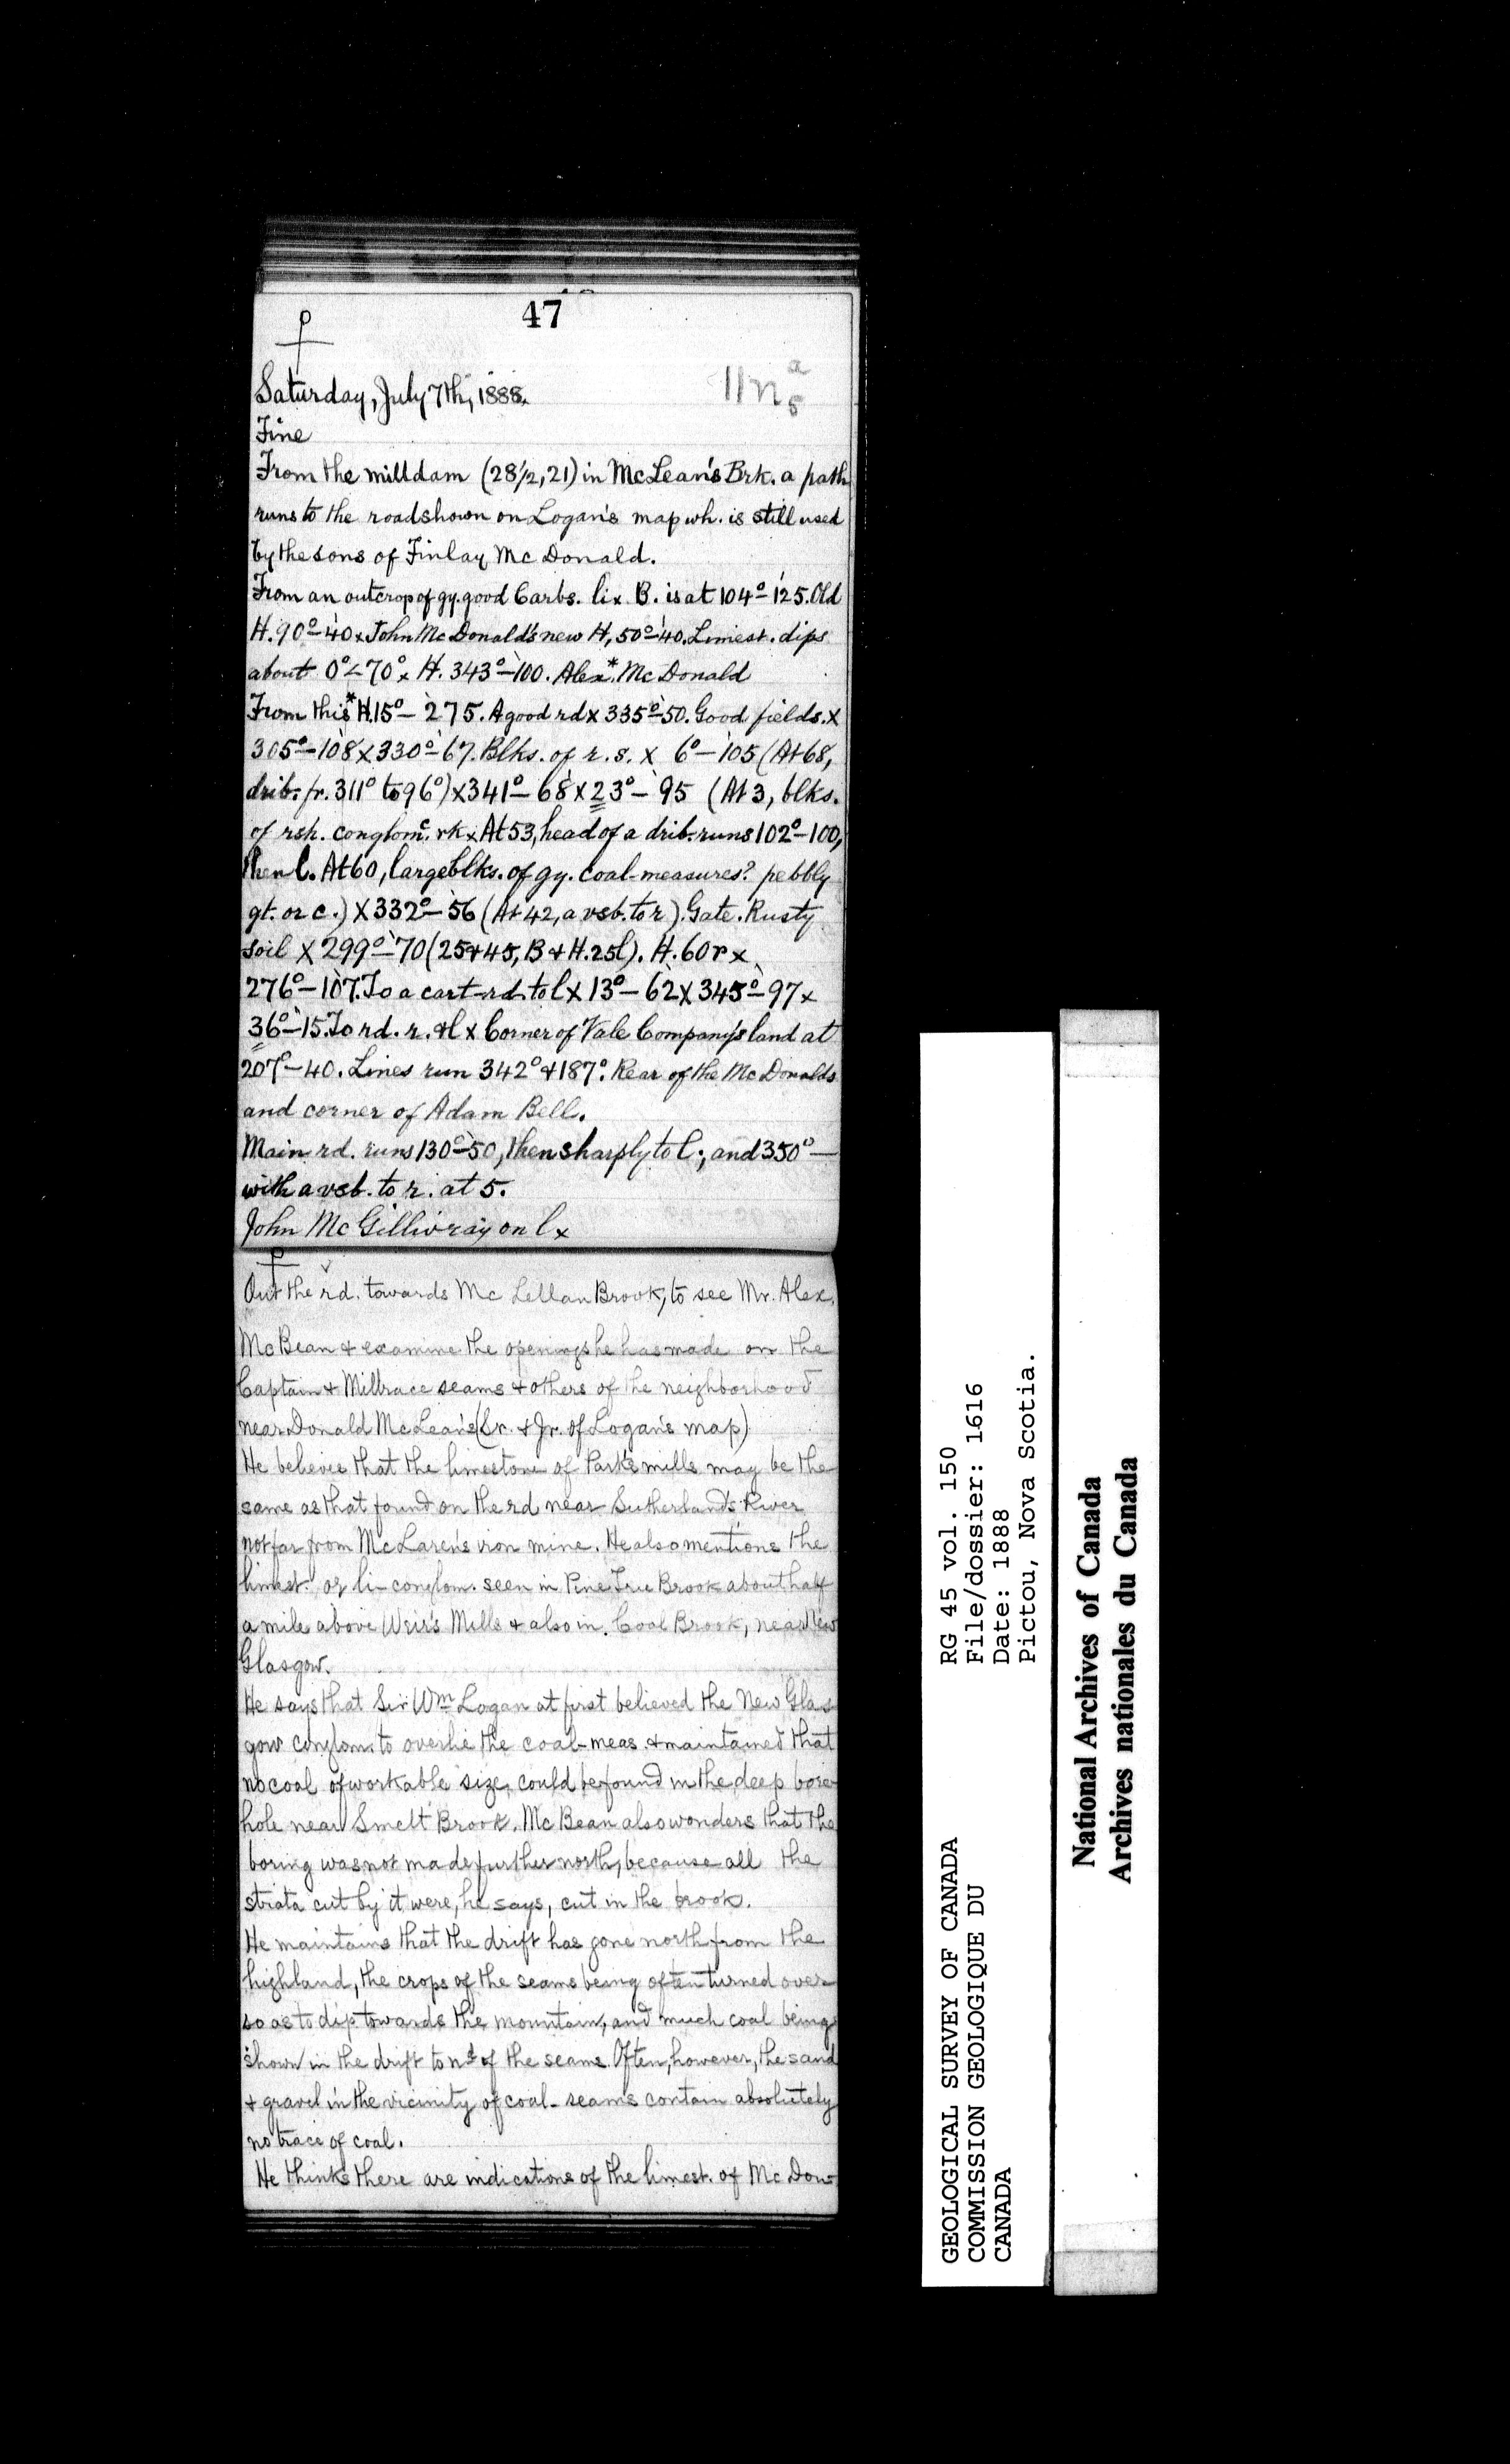 47
Saturday, July 7th, 1888.
11n a/5
Fine
From the milldam (28½, 21) in McLean's Brk. a path
runs to the road shown on Logan's map wh. is still used
by the sons of Finlay McDonald.
From an outcrop of gy. good Carbs. li x B. is at 104° – 125. Old
H. 90° – 40 x John McDonald's new H, 50° – 40. Limest. dips
about 0° < 70° x H. 343° – 100. Alex.* McDonald
From this* H. 15° – 275. A good rd x 335° – 50. Good fields. x
305° – 108 x 330° – 67. Blks. of r. s. x 6° – 105 (At 68,
drib. fr. 311° to 96°) x 341° – 68 x 23° – 95 (At 3, blks.
of rsh. conglomc. rk x At 53, head of a drib. runs 102° – 100,
then l. At 60, large blks. of gy. coal-measures? pebbly
gt. or c.) x 332° – 56 (At 42, a vsb. to r). Gate. Rusty
soil x 299° – 70 (25 & 45, B & H. 25l). H. 60 r x
276° – 107. To a cart-rd. to l x 13° – 62 x 345° – 97 x
36° – 15. To rd. r. & l x Corner of Vale Company's land at
207° – 40. Lines run 342° & 187°. Rear of the McDonalds
and corner of Adam Bell.
Main rd. runs 130° – 50, then sharply to l.; and 350° –
with a vsb. to r. at 5.
John McGillivray on l x
Out the rd. towards McLellan Brook, to see Mr. Alex.
McBean & examine the openings he has made on the
Captain & Millrace seams & others of the neighborhood
near Donald McLean's (Sr. & Jr. of Logan's map)
He believes that the limestone of Park's mills may be the
same as that found on the rd near Sutherland's River
not far from McLaren's iron mine. He also mentions the
limest. or li-conglom. seen in Pine Tree Brook about half
a mile above Weir's Mills & also in Coal Brook, near New
Glasgow.
He says that Sir Wm Logan at first believed the New Glas
gow conglom. to overlie the coal-meas. & maintained that
no coal of workable size could be found in the deep bore
hole near Smelt Brook. McBean also wonders that the
boring was not made further north, because all the
strata cut by it were, he says, cut in the brook.
He maintains that the drift has gone north from the
highland, the crops of the seams being often turned over
so as to dip towards the mountain, and much coal being
shown in the drift to nd of the seams. Often, however, the sand
& gravel in the vicinity of coal-seams contain absolutely
no trace of coal.
He thinks there are indications of the limest. of McDon
GEOLOGICAL SURVEY OF CANADA
COMMISSION GEOLOGIQUE DU
CANADA
RG 45 vol. 150
File/dossier: 1616
Date: 1888
Pictou, Nova Scotia.
National Archives of Canada
Archives nationales du Canada